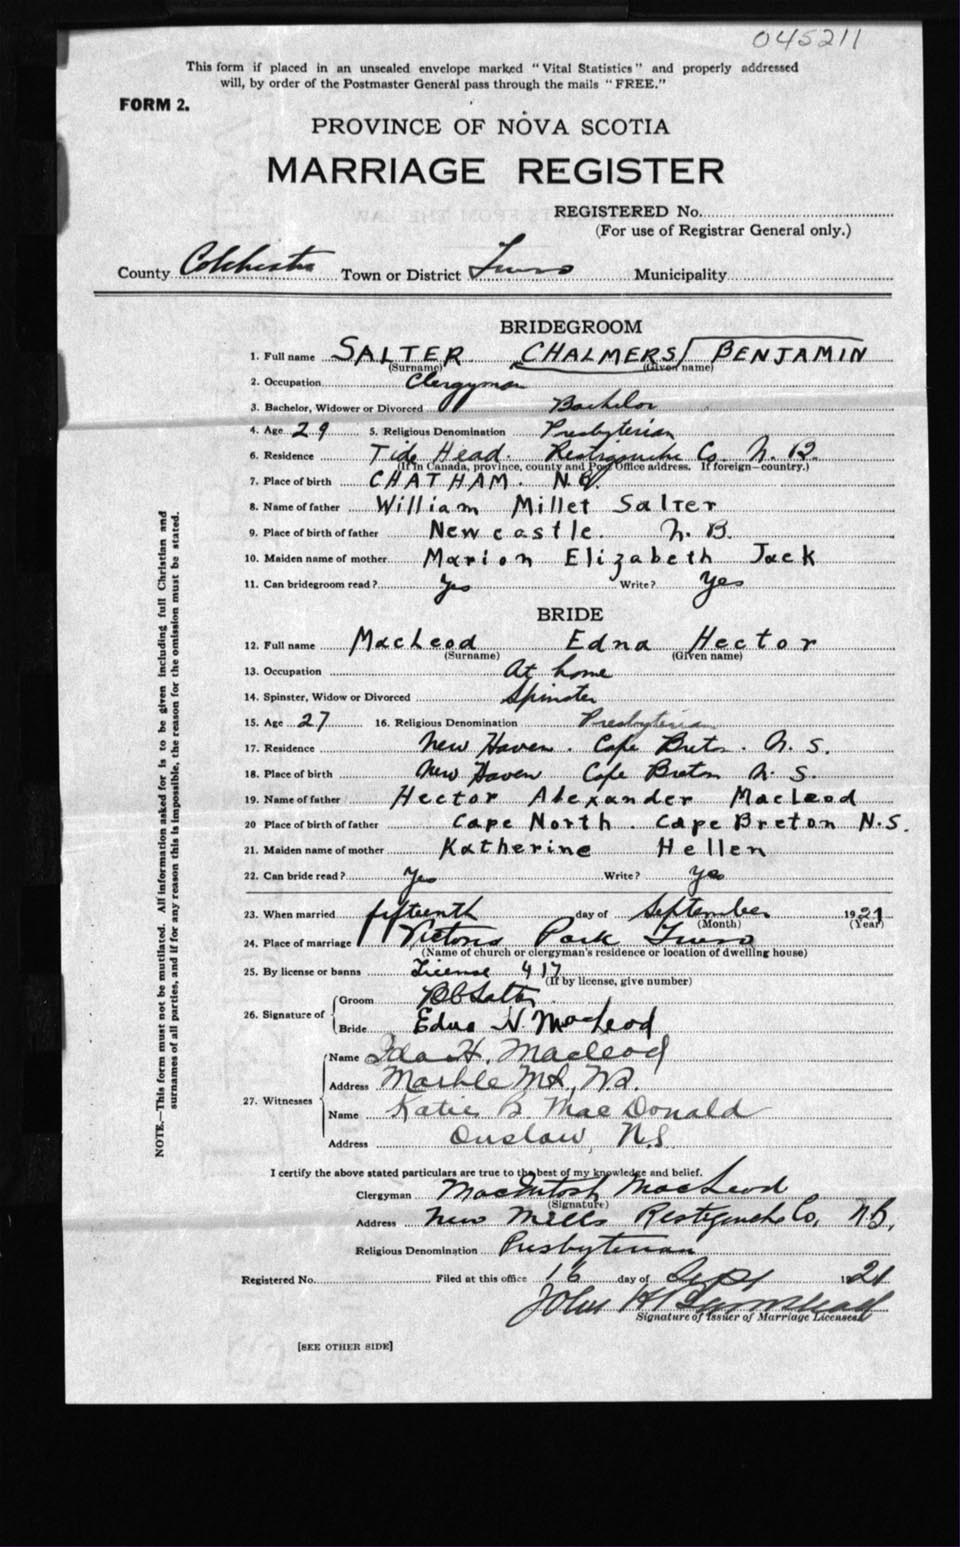 045211
This form if placed in an unsealed envelope marked "Vital Statistics" and properly addressed
will, by order of the Postmaster General pass through the mails "FREE."
FORM 2.
PROVINCE OF NOVA SCOTIA
MARRIAGE REGISTER
REGISTERED No.
(For use of Registrar General only.)
County Colchester Town or District Truro Municipality
BRIDEGROOM
1. Full name SALTER CHALMERS BENJAMIN
(Surname) (Given name)
2. Occupation Clergyman
3. Bachelor, Widower or Divorced Bachelor
4. Age 29 5. Religious Denomination Presbyterian
6. Residence Tide Head. Restigouche Co. N. B.
(If in Canada, province, county and Post Office address. If foreign—country.)
7. Place of birth CHATHAM. N.B.
8. Name of father William Millet Salter
9. Place of birth of father Newcastle. N. B.
10. Maiden name of mother Marion Elizabeth Jack
11. Can bridegroom read? Yes Write? Yes
BRIDE
12. Full name MacLeod Edna Hector
(Surname) (Given name)
13. Occupation At home
14. Spinster, Widow or Divorced Spinster
15. Age 27 16. Religious Denomination Presbyterian
17. Residence New Haven. Cape Breton. N. S.
18. Place of birth New Haven Cape Breton N. S.
19. Name of father Hector Alexander MacLeod
20 Place of birth of father Cape North. Cape Breton N.S.
21. Maiden name of mother Katherine Hellen
22. Can bride read? Yes Write? Yes
23. When married fifteenth day of September 1921
(Month) (Year)
24. Place of marriage Victoria Park Truro
(Name of church or clergyman's residence or location of dwelling house)
25. By license or banns License 417
(If by license, give number)
26. Signature of
Groom Salter
Bride Edna H. MacLeod
27. Witnesses
Name Ida H. Macleod
Address Marble Mt.
Name Katie B. MacDonald
Address Onslow, N.S.
I certify the above stated particulars are true to the best of my knowledge and belief.
Clergyman MacIntosh MacLeod
(Signature)
Address New Mills Restigouche Co, N.B.
Religious Denomination Presbyterian
Registered No. Filed at this office 16 day of Sept 1921
John H
Signature of Issuer of Marriage Licenses
[SEE OTHER SIDE]
NOTE.—This form must not be mutilated. All information asked for is to be given including full Christian and
surnames of all parties, and if for any reason this is impossible, the reason for the omission must be stated.